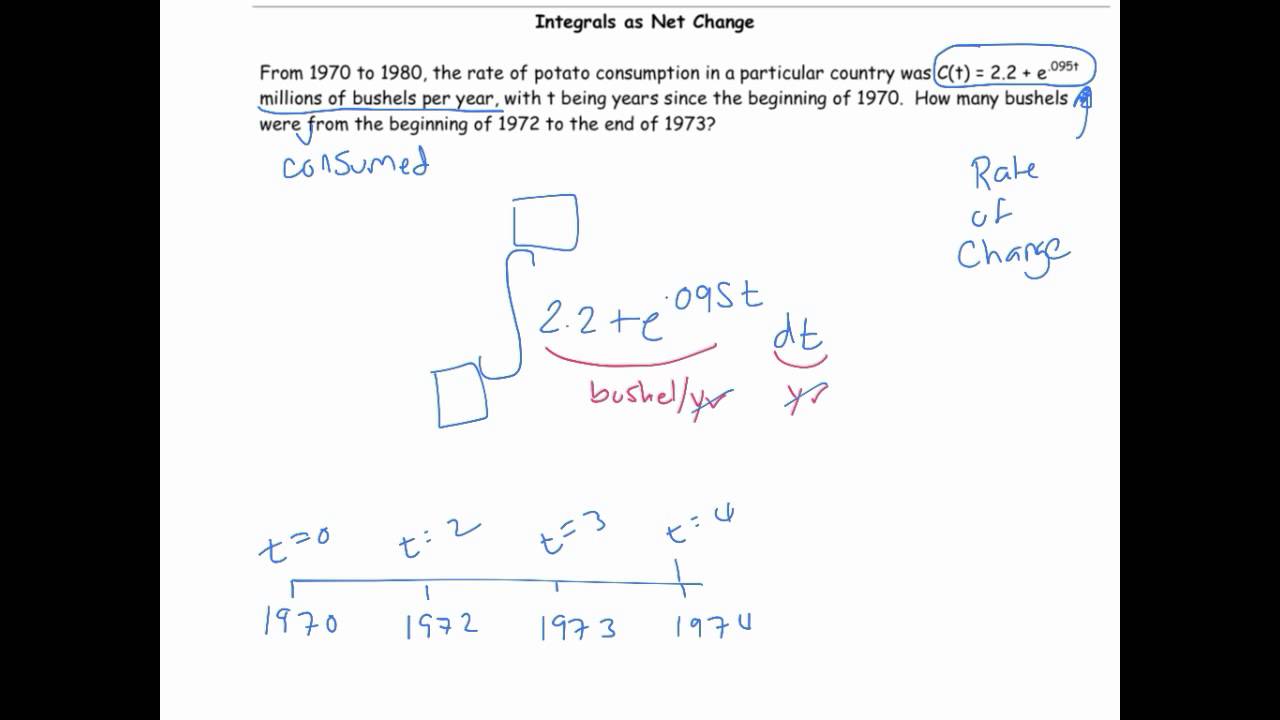 Integrals as Net Change
From 1970 to 1980, the rate of potato consumption in a particular country was C(t) = 2.2 + e^.095t
millions of bushels per year, with t being years since the beginning of 1970. How many bushels
were from the beginning of 1972 to the end of 1973?
consumed
Rate
of
Change
∫ 2.2 + e^.095t dt
bushel/yr yr
t=0 t=2 t=3 t=4
1970 1972 1973 1974